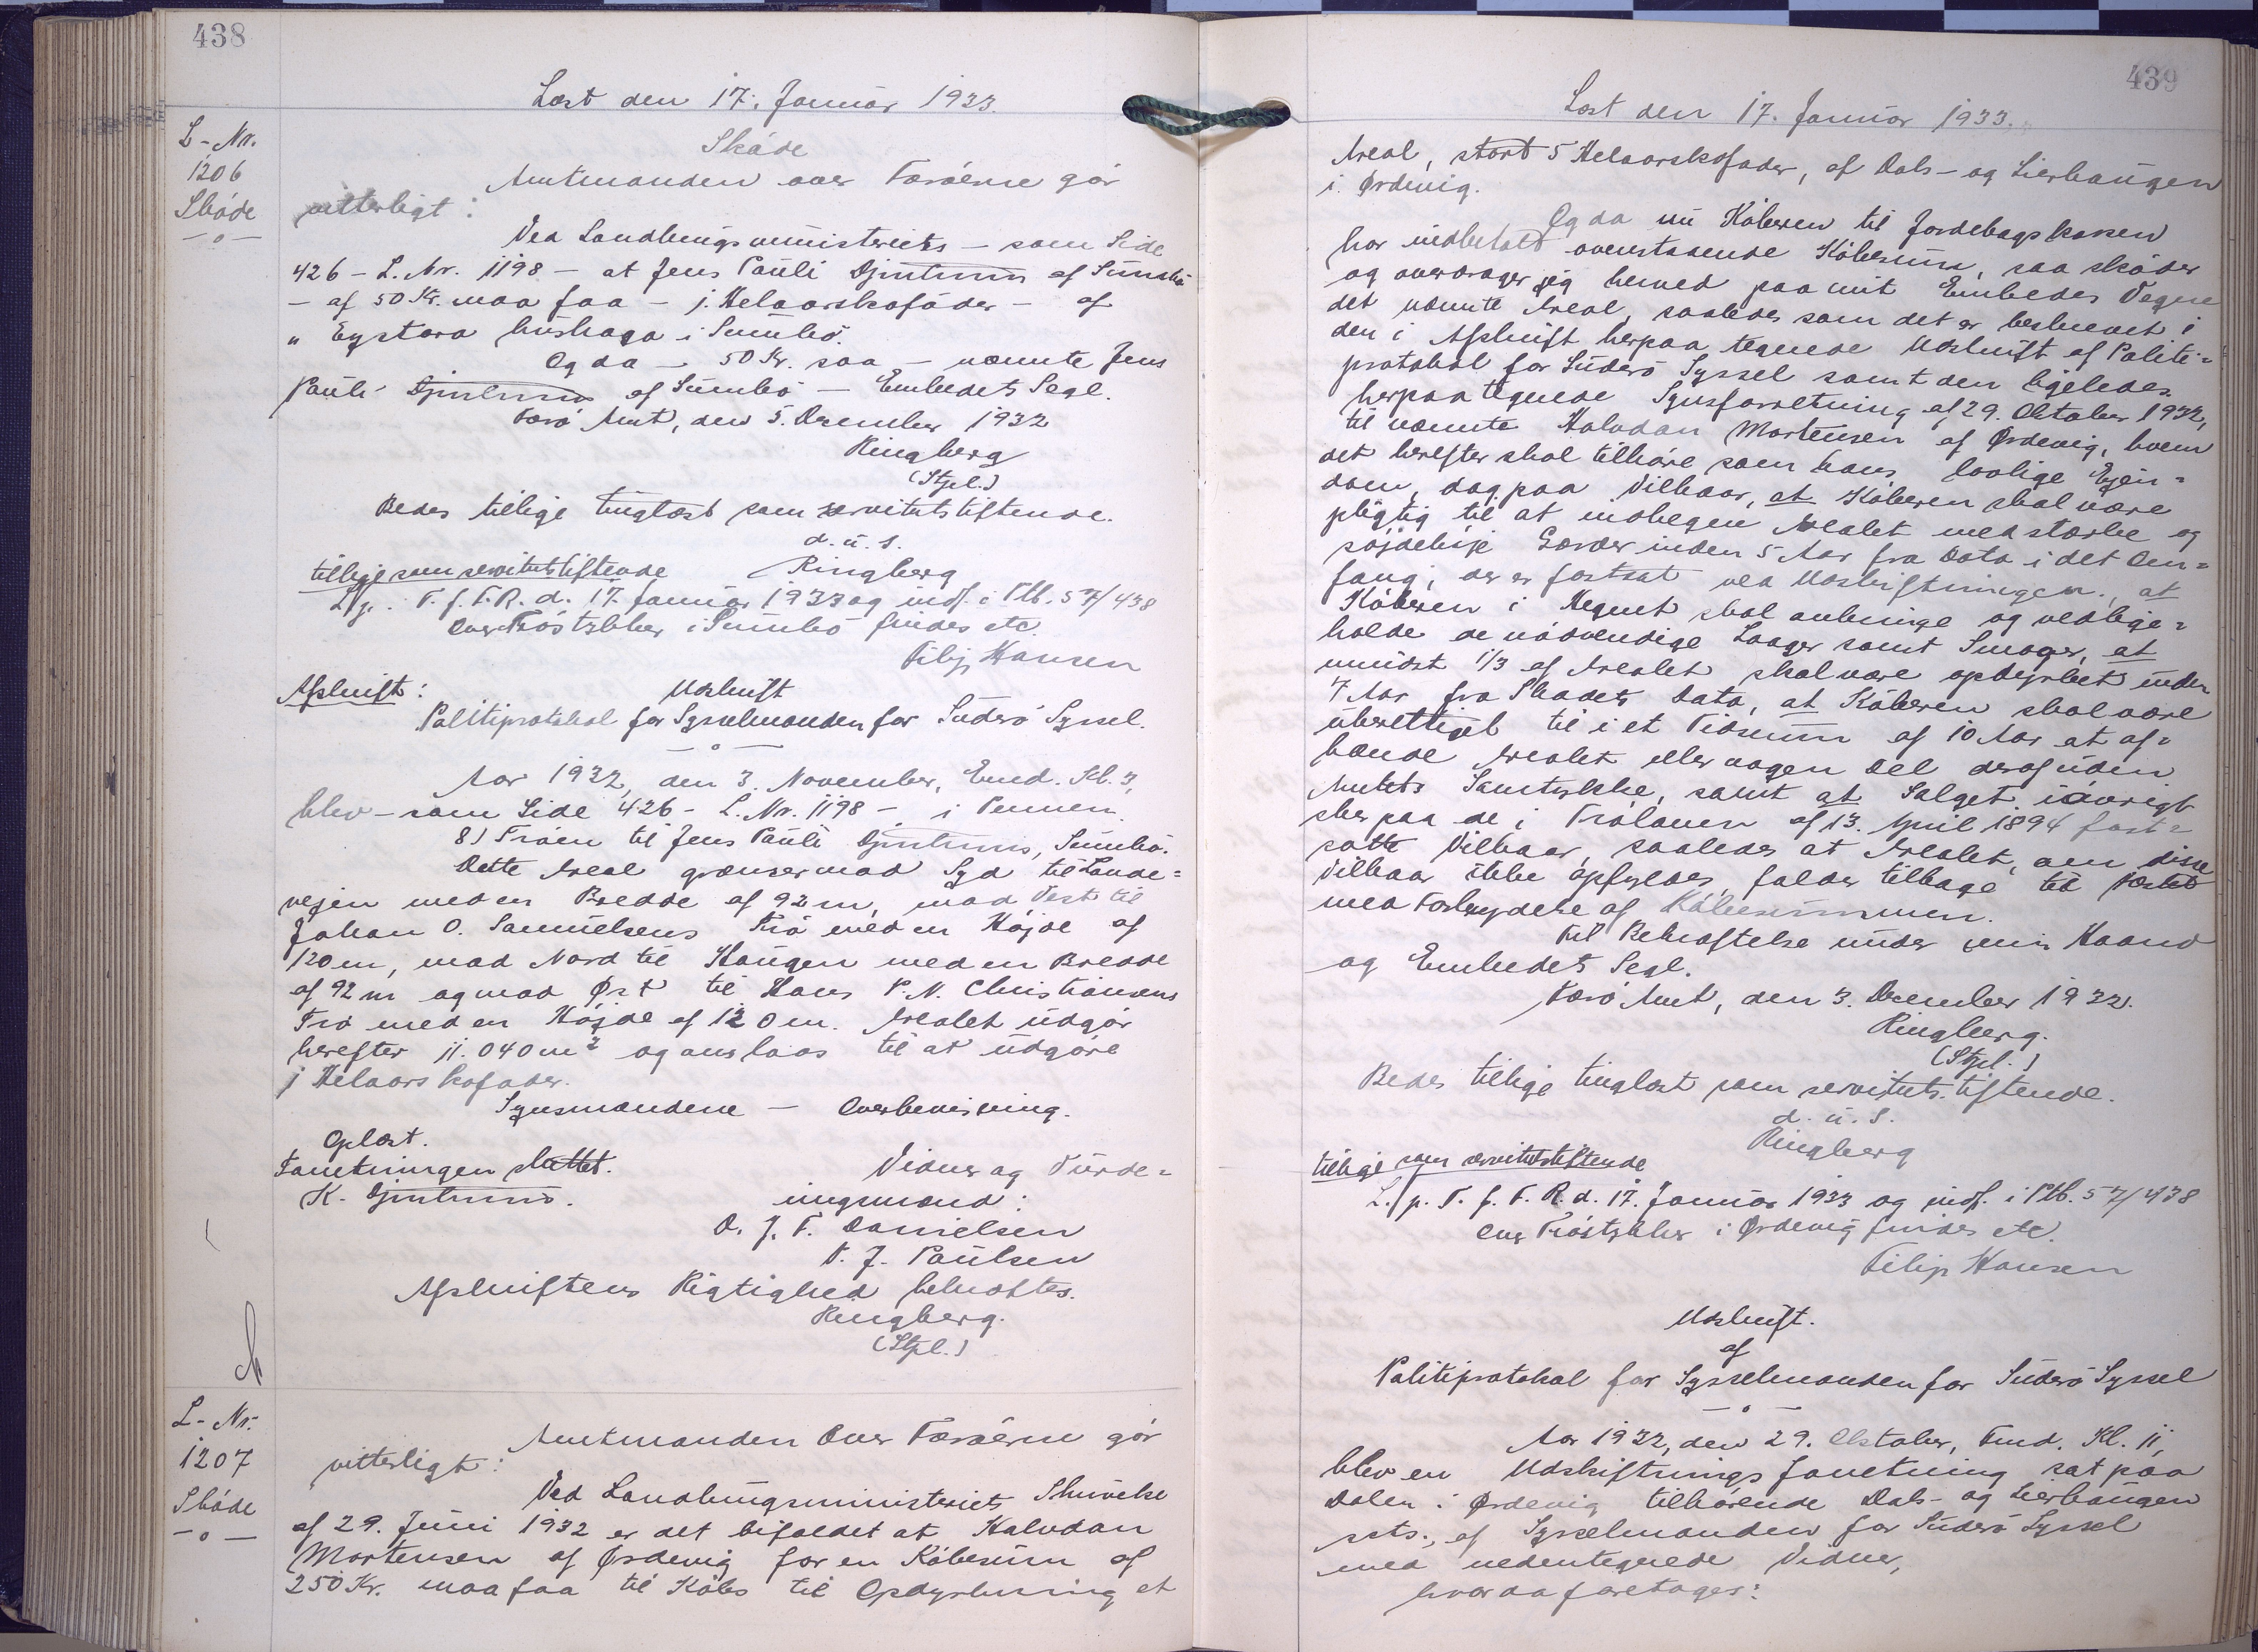 438
Læst den 17. Januar 1933.
L-Nr.
1206
Sköde
—o—
Sköde
Amtmanden over Færöerne gör
vitterligt:
Ved Landbrugsministeriets – som Side
426 – L. Nr. 1198 – at Jens Pauli Djurhuus af Sumbö
– af 50 Kr. maa faa – 1 Helaarskofoder – af
" Eystara húshaga i Sumbö.
Og da – 50 Kr. saa – nævnte Jens
Pauli Djurhuus af Sumbö – Embedets Segl.
Færö Amt, den 5. December 1932
Ringberg
(Stpl.)
Bedes tillige tinglæst som servitutstiftende.
d. u. s.
Ringberg
tillige som servitutstiftende
L. p. T. f. F. R. d. 17. Januar 1933 og indf. i Ptb. 57/438
Over Tröstykker i Sumbö findes etc.
Filip Hansen
Afskrift:
Udskrift
Politiprotokol for Sysselmanden for Suderö Syssel.
—o—
Aar 1932, den 3. November, Emd. Kl. 3,
blev – som Side 426 – L. Nr. 1198 – i Pennen.
8) Tröen til Jens Pauli Djurhuus, Sumbö.
Dette Areal grænser mod Syd til Lande-
vejen med en Bredde af 92 m, mod Vest til
Johan O. Samuelsens Trö med en Højde af
120 m, mod Nord til Haugen med en Bredde
af 92 m og mod Øst til Hans P. N. Christiansens
Trö med en Højde af 120 m. Arealet udgör
herefter 11.040 m² og anslaas til at udgöre
1 Helaarskofoder.
Synsmændene – Overbevisning.
Oplæst.
Forretningen sluttet.
K. Djurhuus.
Vidner og Vurde-
ingsmænd:
D. J. F. Danielsen
P. J. Paulsen
Afskriftens Rigtighed bekræftes.
Ringberg.
(Stpl.)
L-Nr.
1207
Sköde
—o—
Amtmanden Over Færöerne gör
vitterligt:
Ved Landbrugsministeriets Skrivelse
af 29. Juni 1932 er det bifaldet at Halvdan
Mortensen af Ørdevig for en Købesum af
250 Kr. maa faa til Købs til Opdyrkning et
439
Læst den 17. Januar 1933.
Areal, stort 5 Helaarskofoder, af Dals- og Lierhaugen
i Ørdevig.
Og da nu Køberen til Jordebogskassen
har indbetalt ovenstaaende Købesum, saa sköder
og overdrager jeg herved paa mit Embedes Vegne
det nævnte Areal, saaledes som det er beskrevet i
den i Afskrift herpaa tegnede Udskrift af Politi-
protokol for Suderö Syssel samt den ligeledes
herpaa tegnede Synsforretning af 29. Oktober 1932,
til nævnte Halvdan Mortensen af Ørdevig, hvem
det herefter skal tilhøre som hans lovlige Ejen-
dom, dog paa Vilkaar, at Køberen skal være
pligtig til at indhegne Arealet med stærke og
søjdelige Gærder inden 5 Aar fra Dato i det Om-
fang, der er fastsat ved Udskiftningen, at
Køberen i Hegnet skal anbringe og vedlige-
holde de nødvendige Laager samt Smoger, at
mindst 1/3 af Arealet skal være opdyrket inden
7 Aar fra Skødets Dato, at Køberen skal være
uberettiget til i et Tidsrum af 10 Aar at af-
hænde Arealet eller nogen Del deraf uden
Amtets Samtykke, samt at Salget iøvrigt
sker paa de i Trölaven af 13. April 1894 fast-
satte Vilkaar, saaledes at Arealet, om disse
Vilkaar ikke opfyldes, falder tilbage til Fæstet
med Fortabelse af Købesummen.
Til Bekræftelse under min Haand
og Embedets Segl.
Færö Amt, den 3. December 1932.
Ringberg.
(Stpl.)
Bedes tillige tinglæst som servitutstiftende.
d. u. s.
Ringberg
tillige som servitutstiftende
L. p. T. f. F. R. d. 17. Januar 1933 og indf. i Ptb. 57/438
Over Tröstykker i Ørdevig findes etc.
Filip Hansen
Udskrift.
af
Politiprotokol for Sysselmanden for Suderö Syssel
—o—
Aar 1932, den 29. Oktober, Fmd. Kl. 11,
blev en Udskiftningsforretning sat paa
Dalen i Ørdevig tilhørende Dals- og Lierhaugen
sats., af Sysselmanden for Suderö Syssel
med undertegnede Vidner,
hvor da foretages: